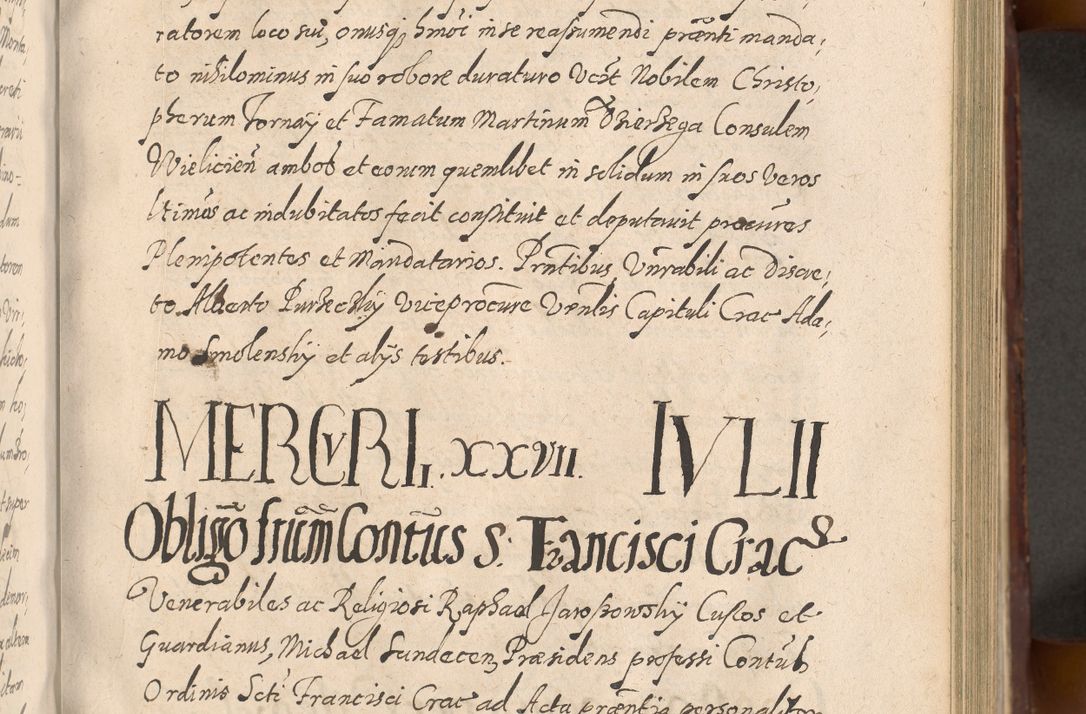 ratorem loco sui, onusq₃ hmōi in se reassumendi præñti manda,
to nihilominus in suo robore duraturo Vcēt Nobilem Christo,
pherum Tornaÿ et Famatum Martinum Obierzega Consulem
Wielicień ambos et eorum quemlibet in solidum in suos veros
ltimos ac indubitatos fecit constituit et deputavit procures
Plenipotentes et Mandatarios. Prñtibus Vnrabili ac Discre,
to Alberto Purzeckÿ Viceprocure Venlis Capituli Crac Ada,
mo Smolenskÿ et alÿs testibus.
MERCVRII. XXVII. IVLII
Obligõ frũm Contũs S. Francisci Crac
Venerabiles ac Religiosi Raphael Jaroszowskÿ Custos et
Guardianus, Michael Sandecen, Præsidens professi Contūs
Ordinis Scti Francisci Crac ad Acta præñtia personaliter